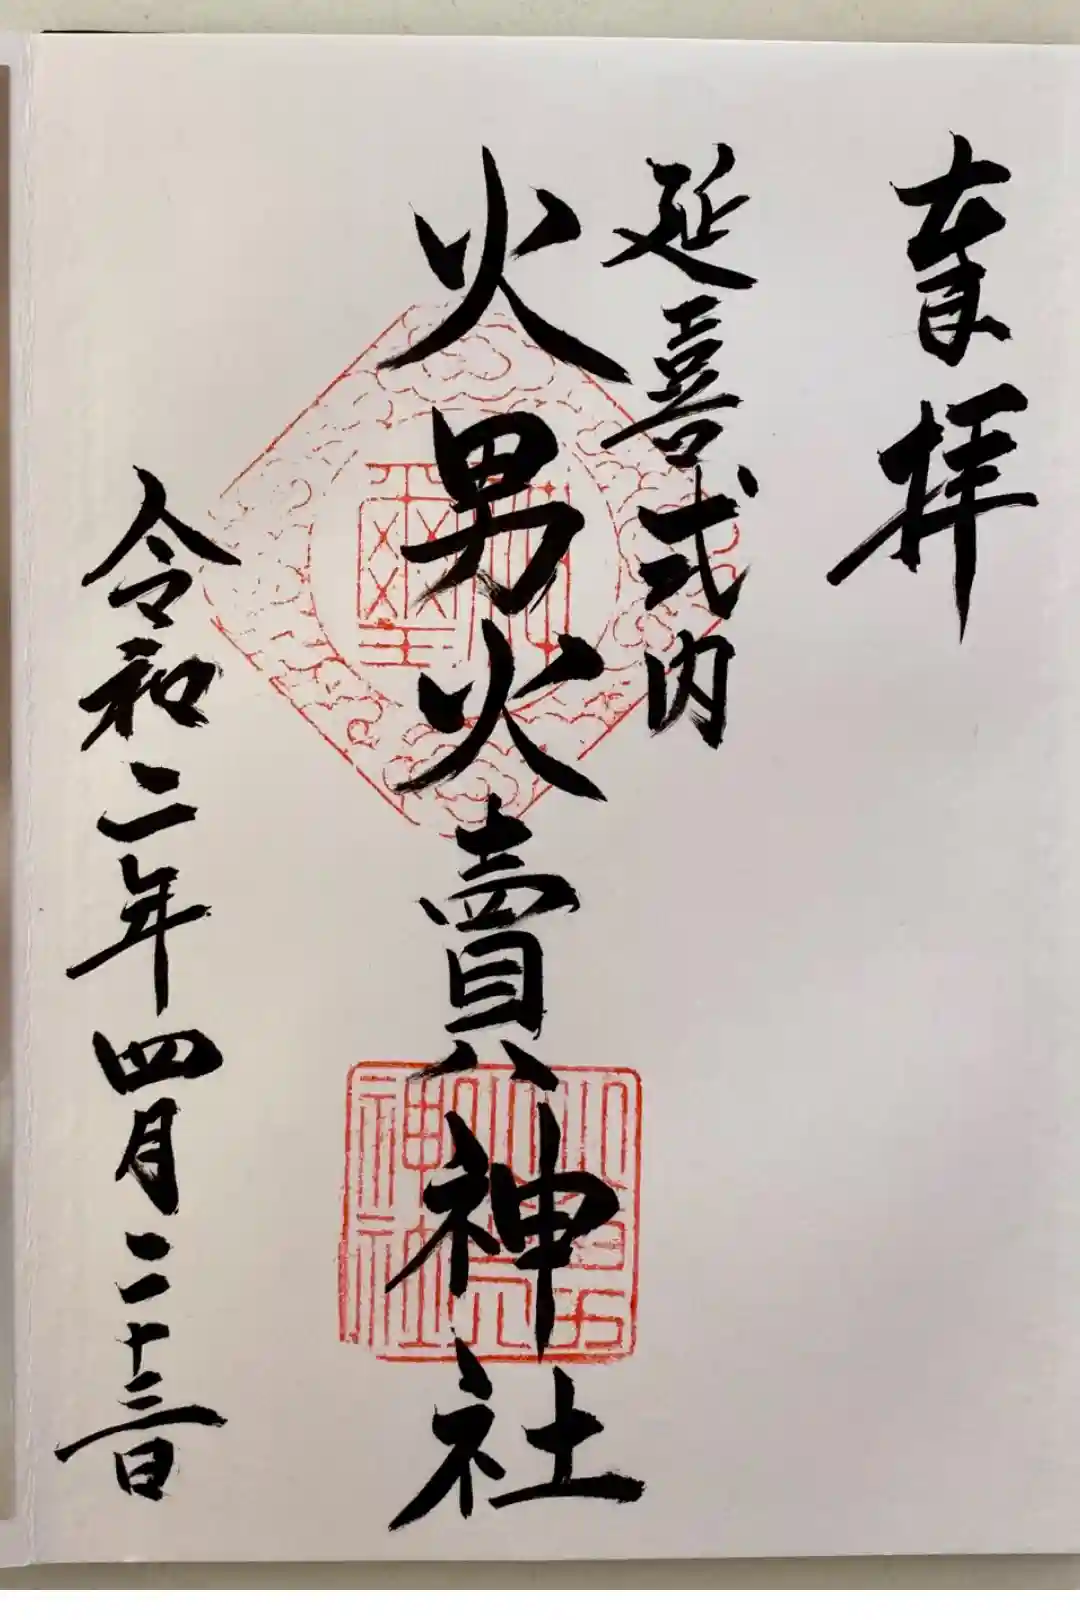 奉拝
延喜式内
火男火賣神社
令和二年四月二十三日